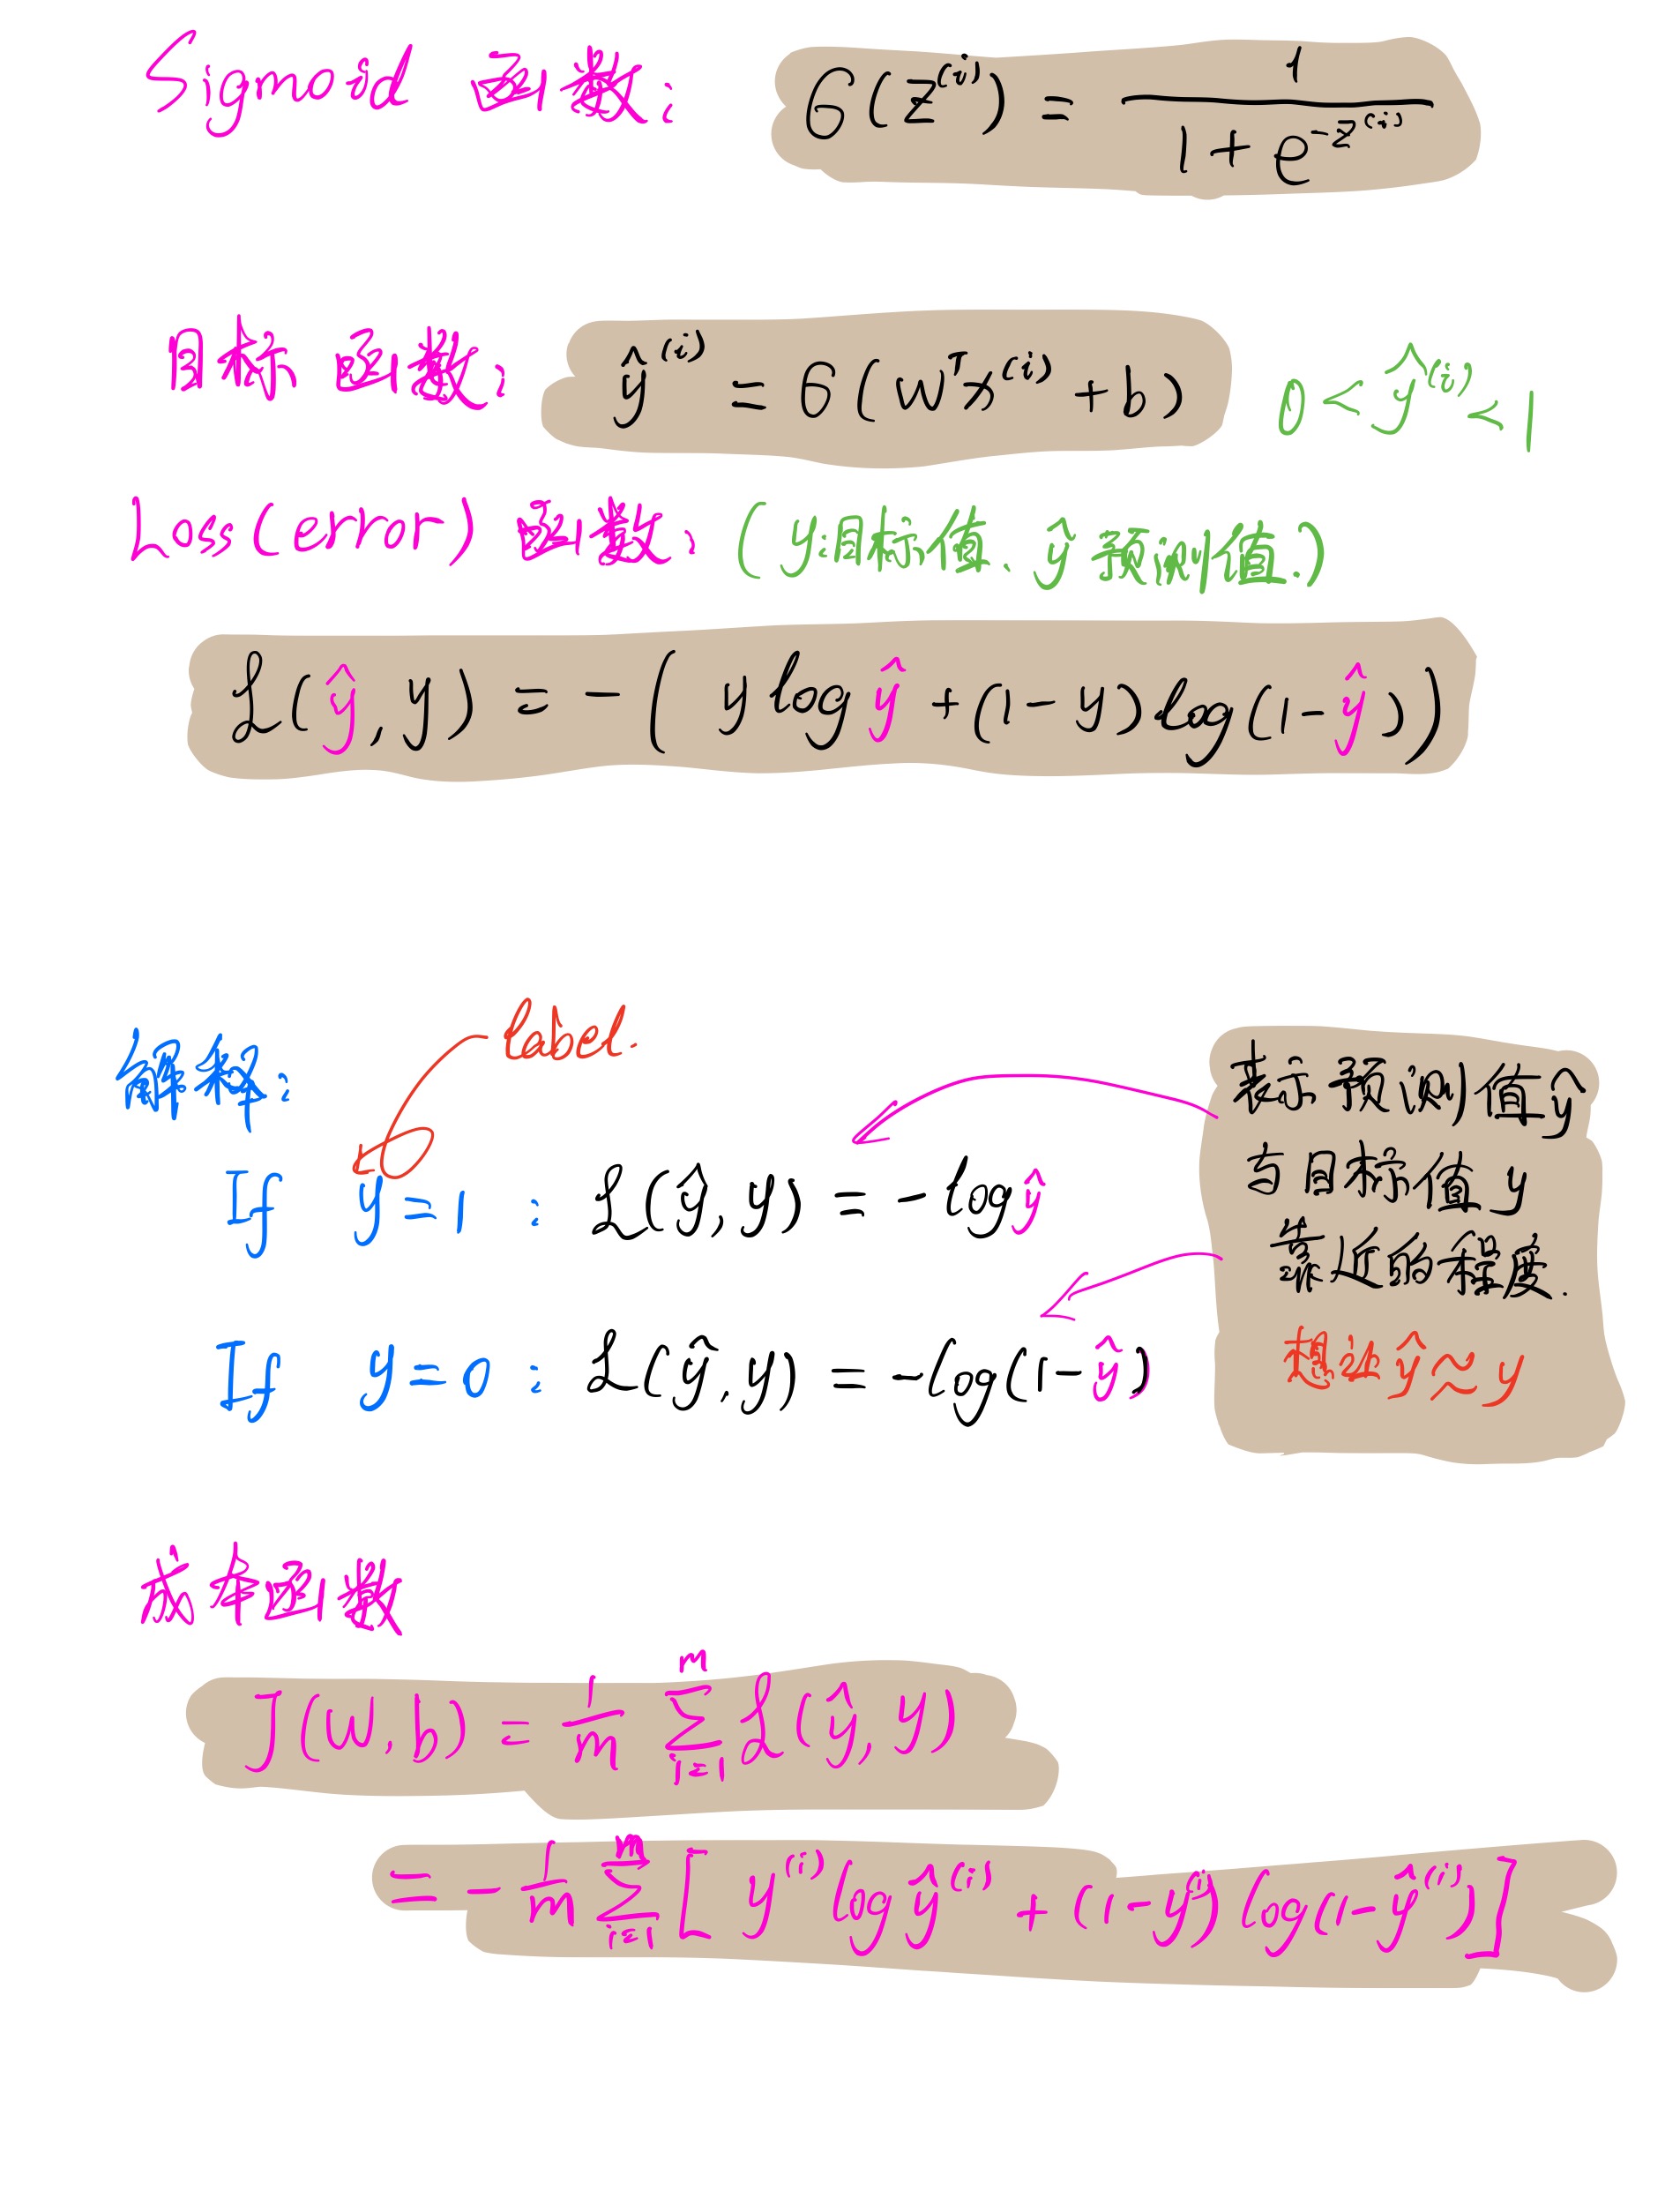 Sigmoid 函数: σ(z⁽ⁱ⁾) = 1 / (1 + e^(-z⁽ⁱ⁾))
目标函数: ŷ⁽ⁱ⁾ = σ(wᵀx⁽ⁱ⁾ + b) 0 < ŷ⁽ⁱ⁾ < 1
Loss(error) 函数: (y:目标值、ŷ 预测值.)
ℒ(ŷ, y) = -( y log ŷ + (1-y) log(1-ŷ))
label.
解释:
If y=1 : ℒ(ŷ, y) = -log ŷ
If y=0 : ℒ(ŷ, y) = -log(1-ŷ)
表示预测值ŷ
与目标值y
靠近的程度.
想让 ŷ ≈ y
成本函数
J(W, b) = 1/m Σᵢ₌₁ᵐ ℒ(ŷ, y)
= - 1/m Σᵢ₌₁ᵐ [ y⁽ⁱ⁾ log ŷ⁽ⁱ⁾ + (1-y⁽ⁱ⁾) log(1-ŷ⁽ⁱ⁾)]